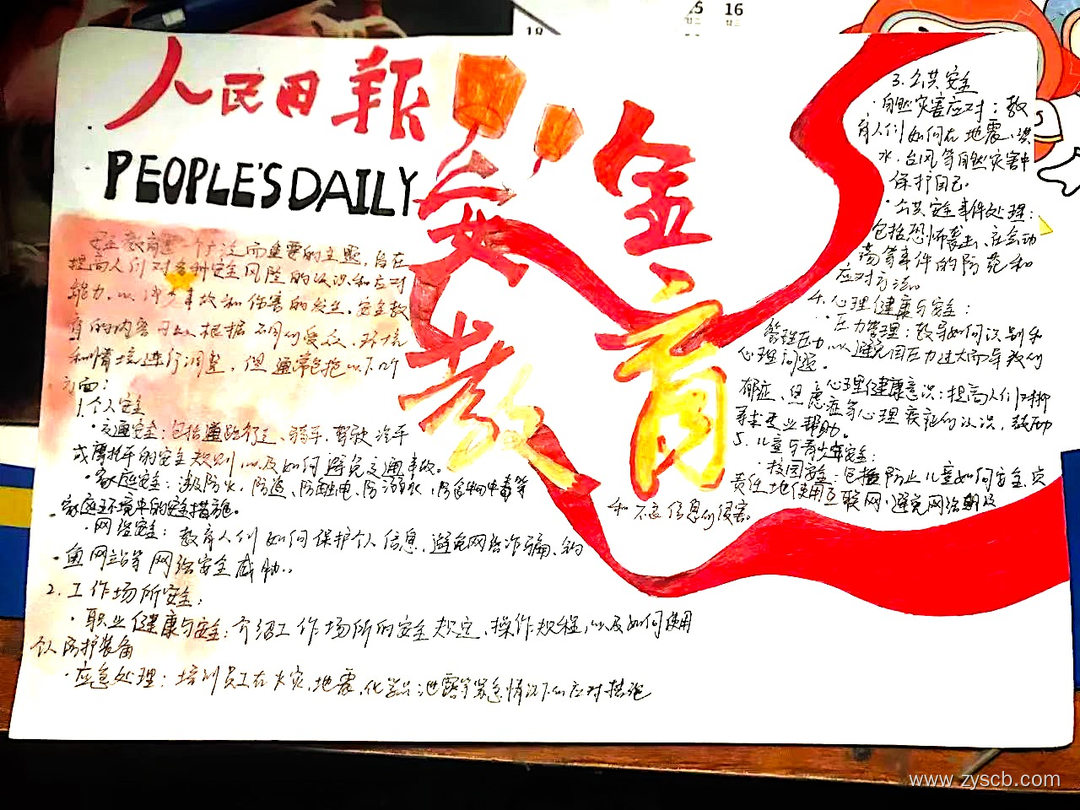 人民日报
PEOPLE'S DAILY
安全
教育
安全教育是一个广泛而重要的主题,旨在
提高人们对各种安全风险的认识和应对
能力,以减少事故和伤害的发生。安全教
育的内容可以根据不同的受众、环境
和情境进行调整,但通常包括以下几个
方面:
1.个人安全
·交通安全:包括道路行走、骑车、驾驶汽车
或摩托车的安全规则以及如何避免交通事故。
·家庭安全:涉及防火、防盗、防触电、防溺水、防食物中毒等
家庭环境中的安全措施。
·网络安全:教育人们如何保护个人信息,避免网络诈骗、钓
鱼网站等网络安全威胁..
2.工作场所安全:
·职业健康与安全:介绍工作场所的安全规定、操作规程,以及如何使用
个人防护装备
·应急处理:培训员工在火灾、地震、化学品泄露等紧急情况下的应对措施
3.公共安全
·自然灾害应对:教
育人们如何在地震、洪
水、台风等自然灾害中
保护自己。
·公共安全事件处理:
包括恐怖袭击、社会动
荡等事件的防范和
应对方法。
4.心理健康与安全:
·压力管理:教导如何识别和
管理压力,以避免因压力过大而导致的
心理问题。
心理健康意识:提高人们对抑
郁症、焦虑症等心理疾病的认识,鼓励
寻求专业帮助。
5.儿童与青少年安全:
·校园安全:包括防止儿童如何安全、
责任地使用互联网,避免网络欺凌
和不良信息的侵害。
www.zyscb.com
18
15
16